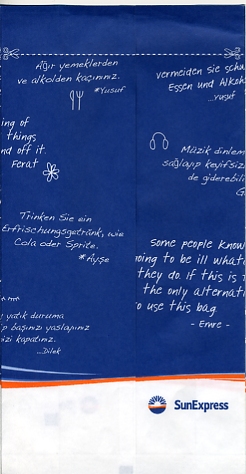 Ağır yemeklerden
ve alkolden kaçınınız.
*Yusuf
vermeiden Sie
Essen und Alkoh
...Yusuf
ing of
things
nd off it.
Ferat
Müzik dinlem
sağlayıp keyifsiz
de giderebili
Trinken Sie ein
Erfrischungsgetränk, wie
Cola oder Sprite.
*Ayşe
Some people know
oing to be ill what
they do. If this is
the only alternati
o use this bag.
- Emre -
yatık duruma
p başınızı yaslayınız
izi kapatınız.
...Dilek
SunExpress